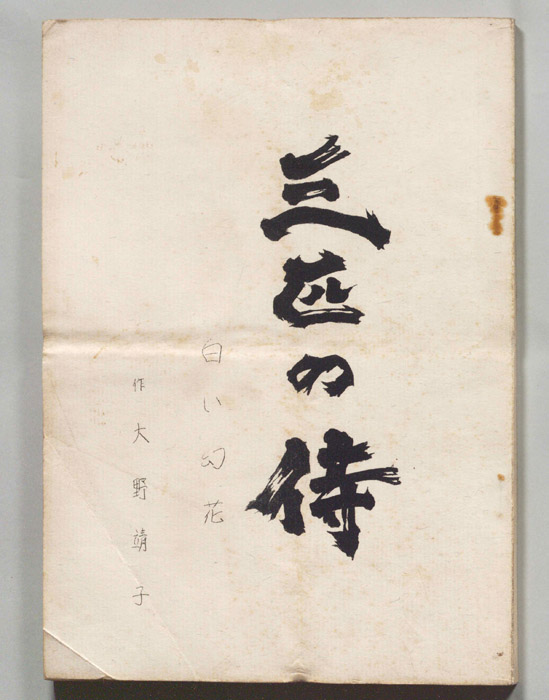 三匹の侍
白い幻花
作 大野靖子